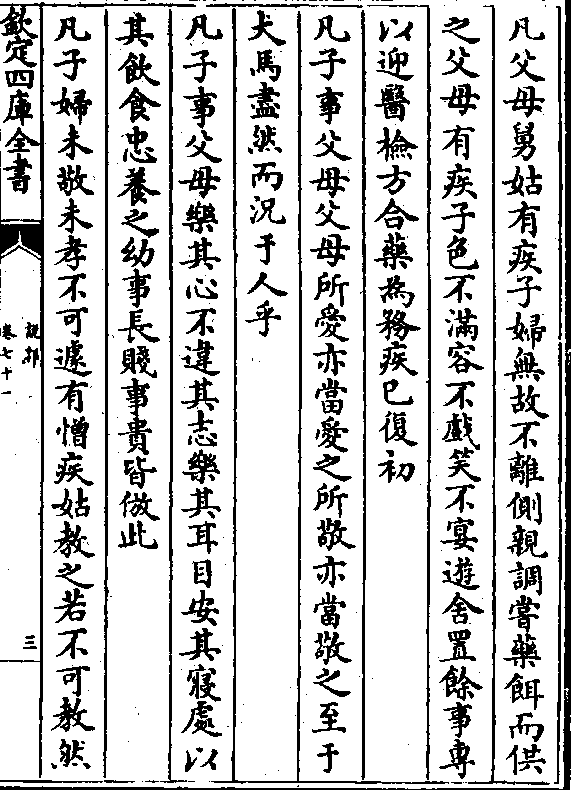 凡父母舅姑有疾子婦無故不離側親調嘗藥餌而供
之父母有疾子色不滿容不戲笑不宴遊舍置餘事專
以迎醫檢方合藥為務疾已復初
凡子事父母父母所愛亦當愛之所敬亦當敬之至于
犬馬盡然而況于人乎
凡子事父母樂其心不違其志樂其耳目安其寢處以
其飲食忠養之幼事長賤事貴皆倣此
凡子婦未敬未孝不可遽有憎疾姑教之若不可教然
欽定四庫全書
說郛
卷七十一
三